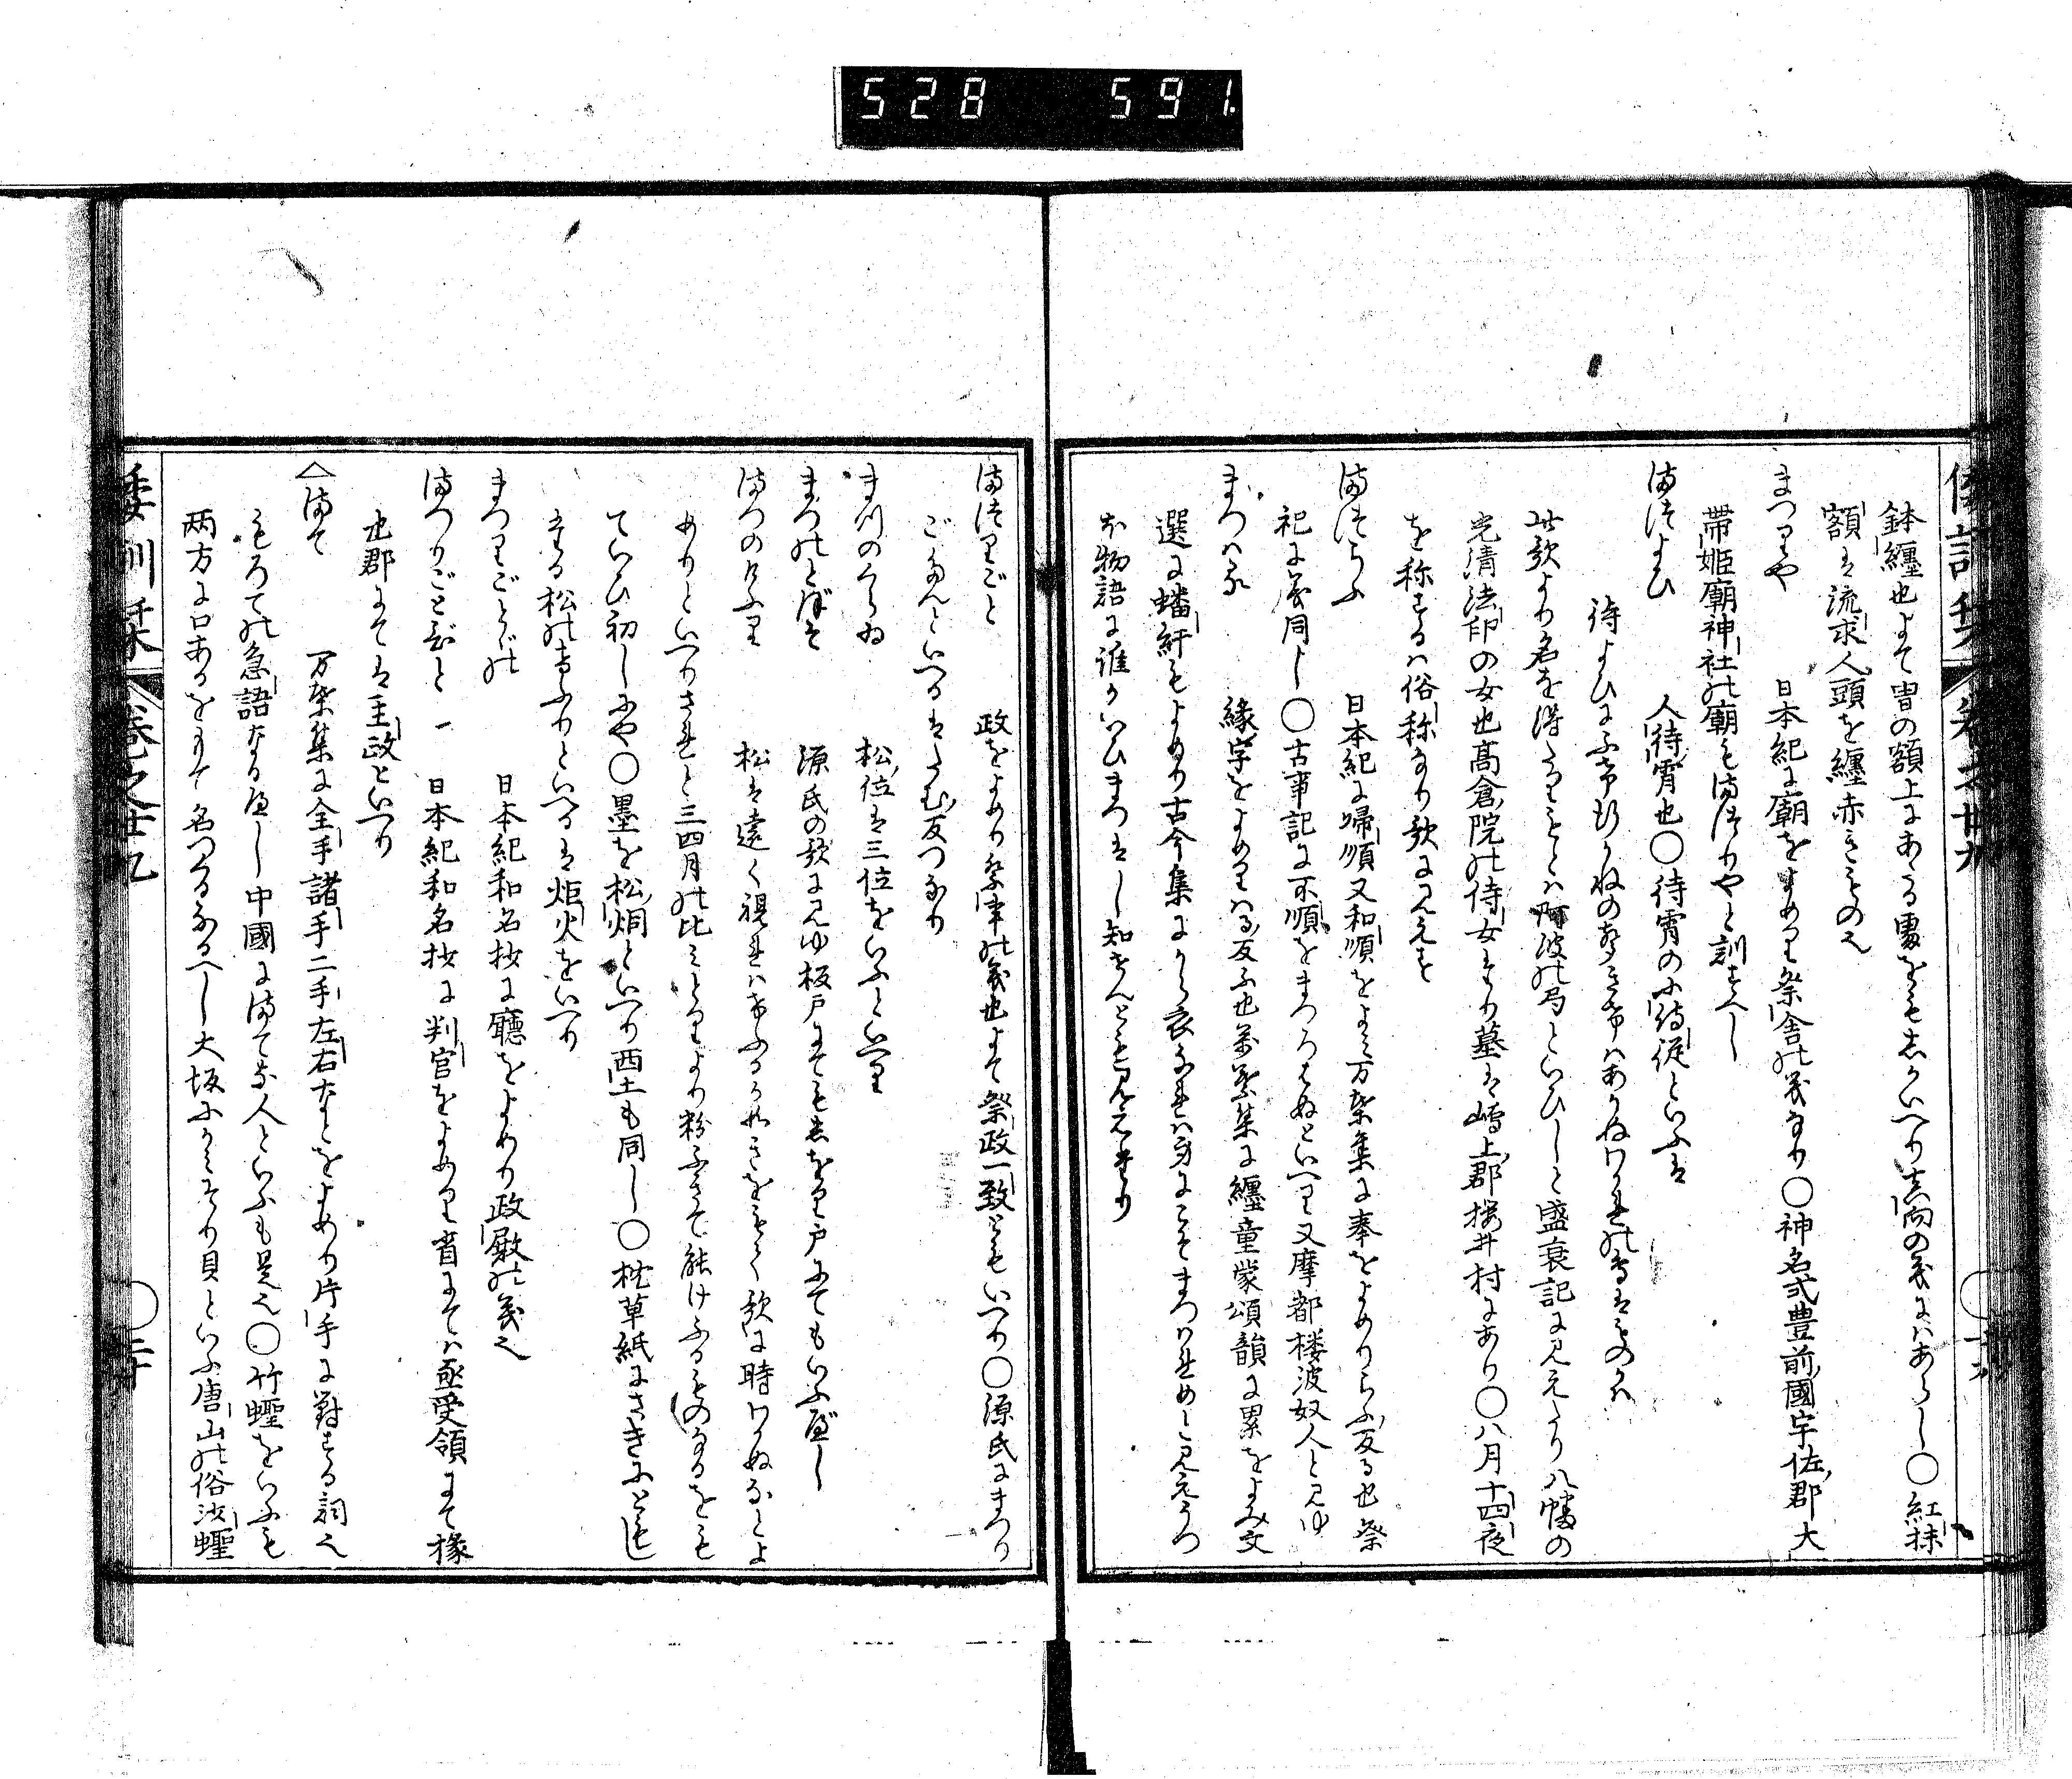 528 591
鉢纏也よて冑の額上にある處をもしかいへり真向の義にはあらし〇紅抹
額は流求人頭を纏赤きもの也
まつりや 日本紀に廟をよめり祭舎の義なり〇神名式豊前國宇佐郡大
帯姫廟神社の廟もまつりやと訓すへし
まつよひ 人待宵也〇待宵の小侍従といふは
待よひにふけ行かねの聲きけはあかぬわかれの鳥はものかは
此歌より名を得たりもとは阿波の局といひしと盛衰記に見えたり八幡の
光清法印の女也髙倉院の侍女なり墓は嶋上郡桜井村にあり〇八月十四夜
を称するは俗称なり歌に見えす
まつらふ 日本紀に歸順又和順をよみ万葉集に奉をよめりらふ反る也祭
祀に義同し〇古事記に不順をまつろはぬといへり又摩都樓波奴人と見ゆ
まつはる 縁字をよめりはる反ふ也万葉集に纏童蒙頌韻に累をよみ文
選に蟠紆もよめり古今集にから衣なれは身にこそまつはれめと見えうつ
ほ物語に誰かいひまつはし知せんとも見えたり
まつりごと 政をよめり祭事の義也よて祭政一致ともいへり〇源氏にまつり
ごたんといへるはたむ反つなり
まつのくらゐ 松位は三位をいふといへり
まつのとぼそ 源氏の歌に見ゆ板戸にても しをり戸にてもいふべし
まつのけふり 松は遠く視れはけふりかなきをもて歌に時わかぬなとよ
めりといへりされと三四月の比みとりより粉ふきて能けふるものなるをも
ていひ初しにや〇墨を松烟といへり西土も同し〇枕草紙にさきにともし
たる松のけふりといへるは炬火をいへり
まつりごとどの 日本紀和名抄に廳をよめり政殿の義也
まつりごとびと 日本紀和名抄に判官をよめり省にては丞受領にて掾
也郡にては主政といへり
△まて 万葉集に全手諸手二手左右なとをよめり片手に對する詞也
もろての急語なるへし中國にまて な人といふも是也〇竹蟶をいふも
両方に口あるをもて名つくるなるへし大坂にかみそり貝といふ唐山の俗沙蟶
倭訓栞 巻之廿九 二十